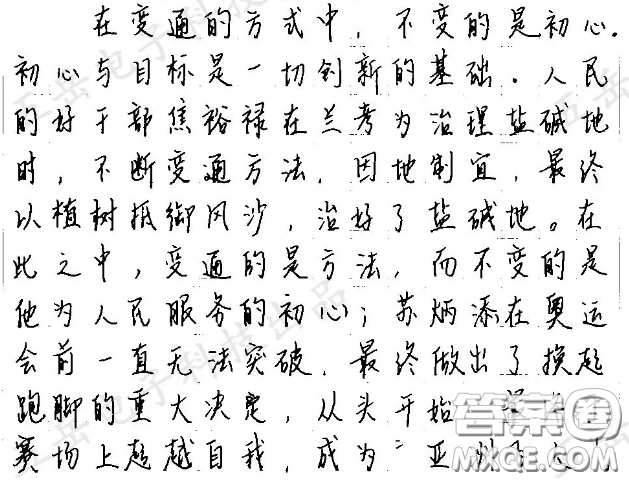 在变通的方式中，不变的是初心.
初心与目标是一切创新的基础．人民
的好干部焦裕禄在兰考为治理盐碱地
时，不断变通方法，因地制宜，最终
以植树抵御风沙，治好了盐碱地。在
此之中，变通的是方法，而不变的是
他为人民服务的初心；苏炳添在奥运
会前一直无法突破，最终做出了换起
跑脚的重大决定，从头开始
赛场上超越自我，成为“亚
答案圈
MXQE.COM